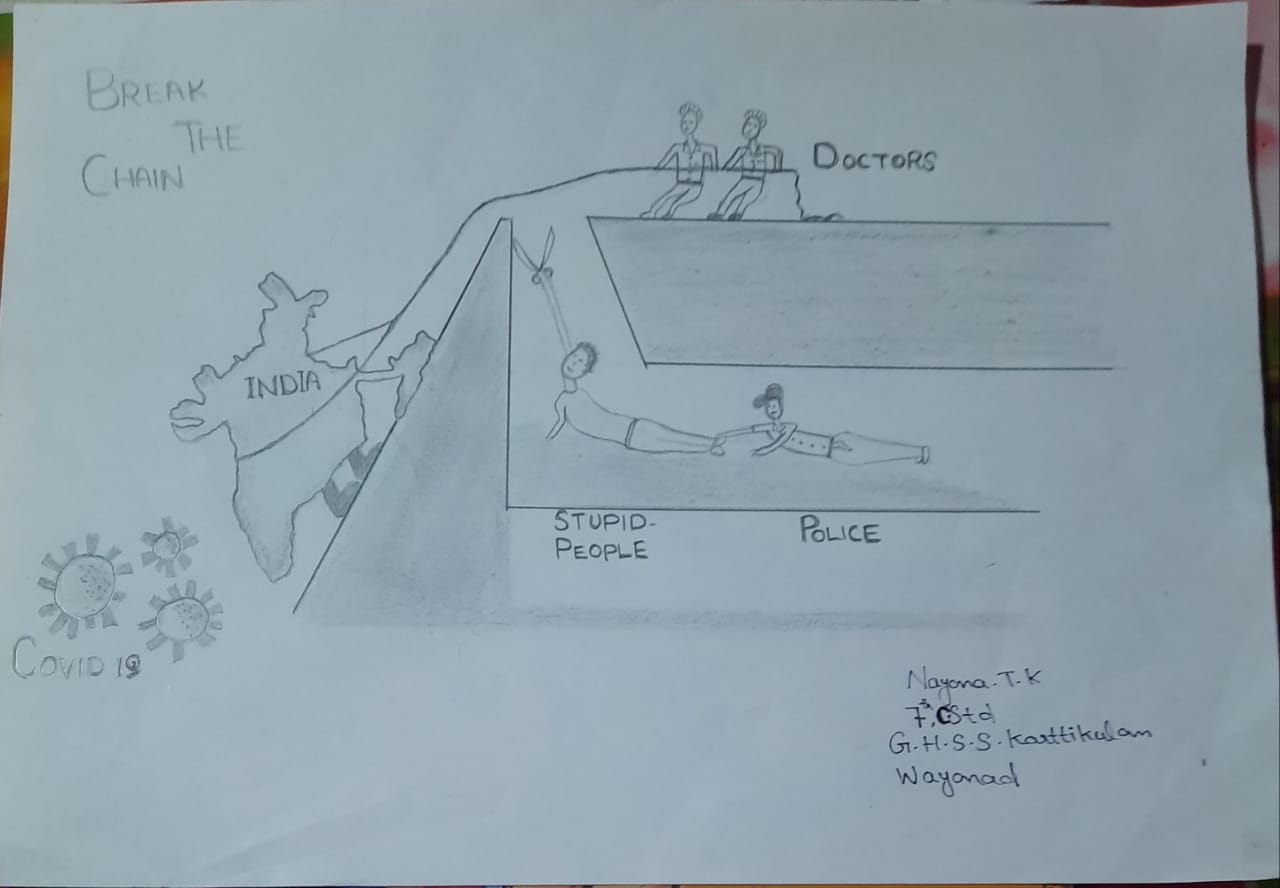 BREAK
THE
CHAIN
DOCTORS
INDIA
STUPID-
PEOPLE
POLICE
COVID 19
Nayona-T-K
7th, C Std
G.H.S.S. Karttikulam
Wayanad